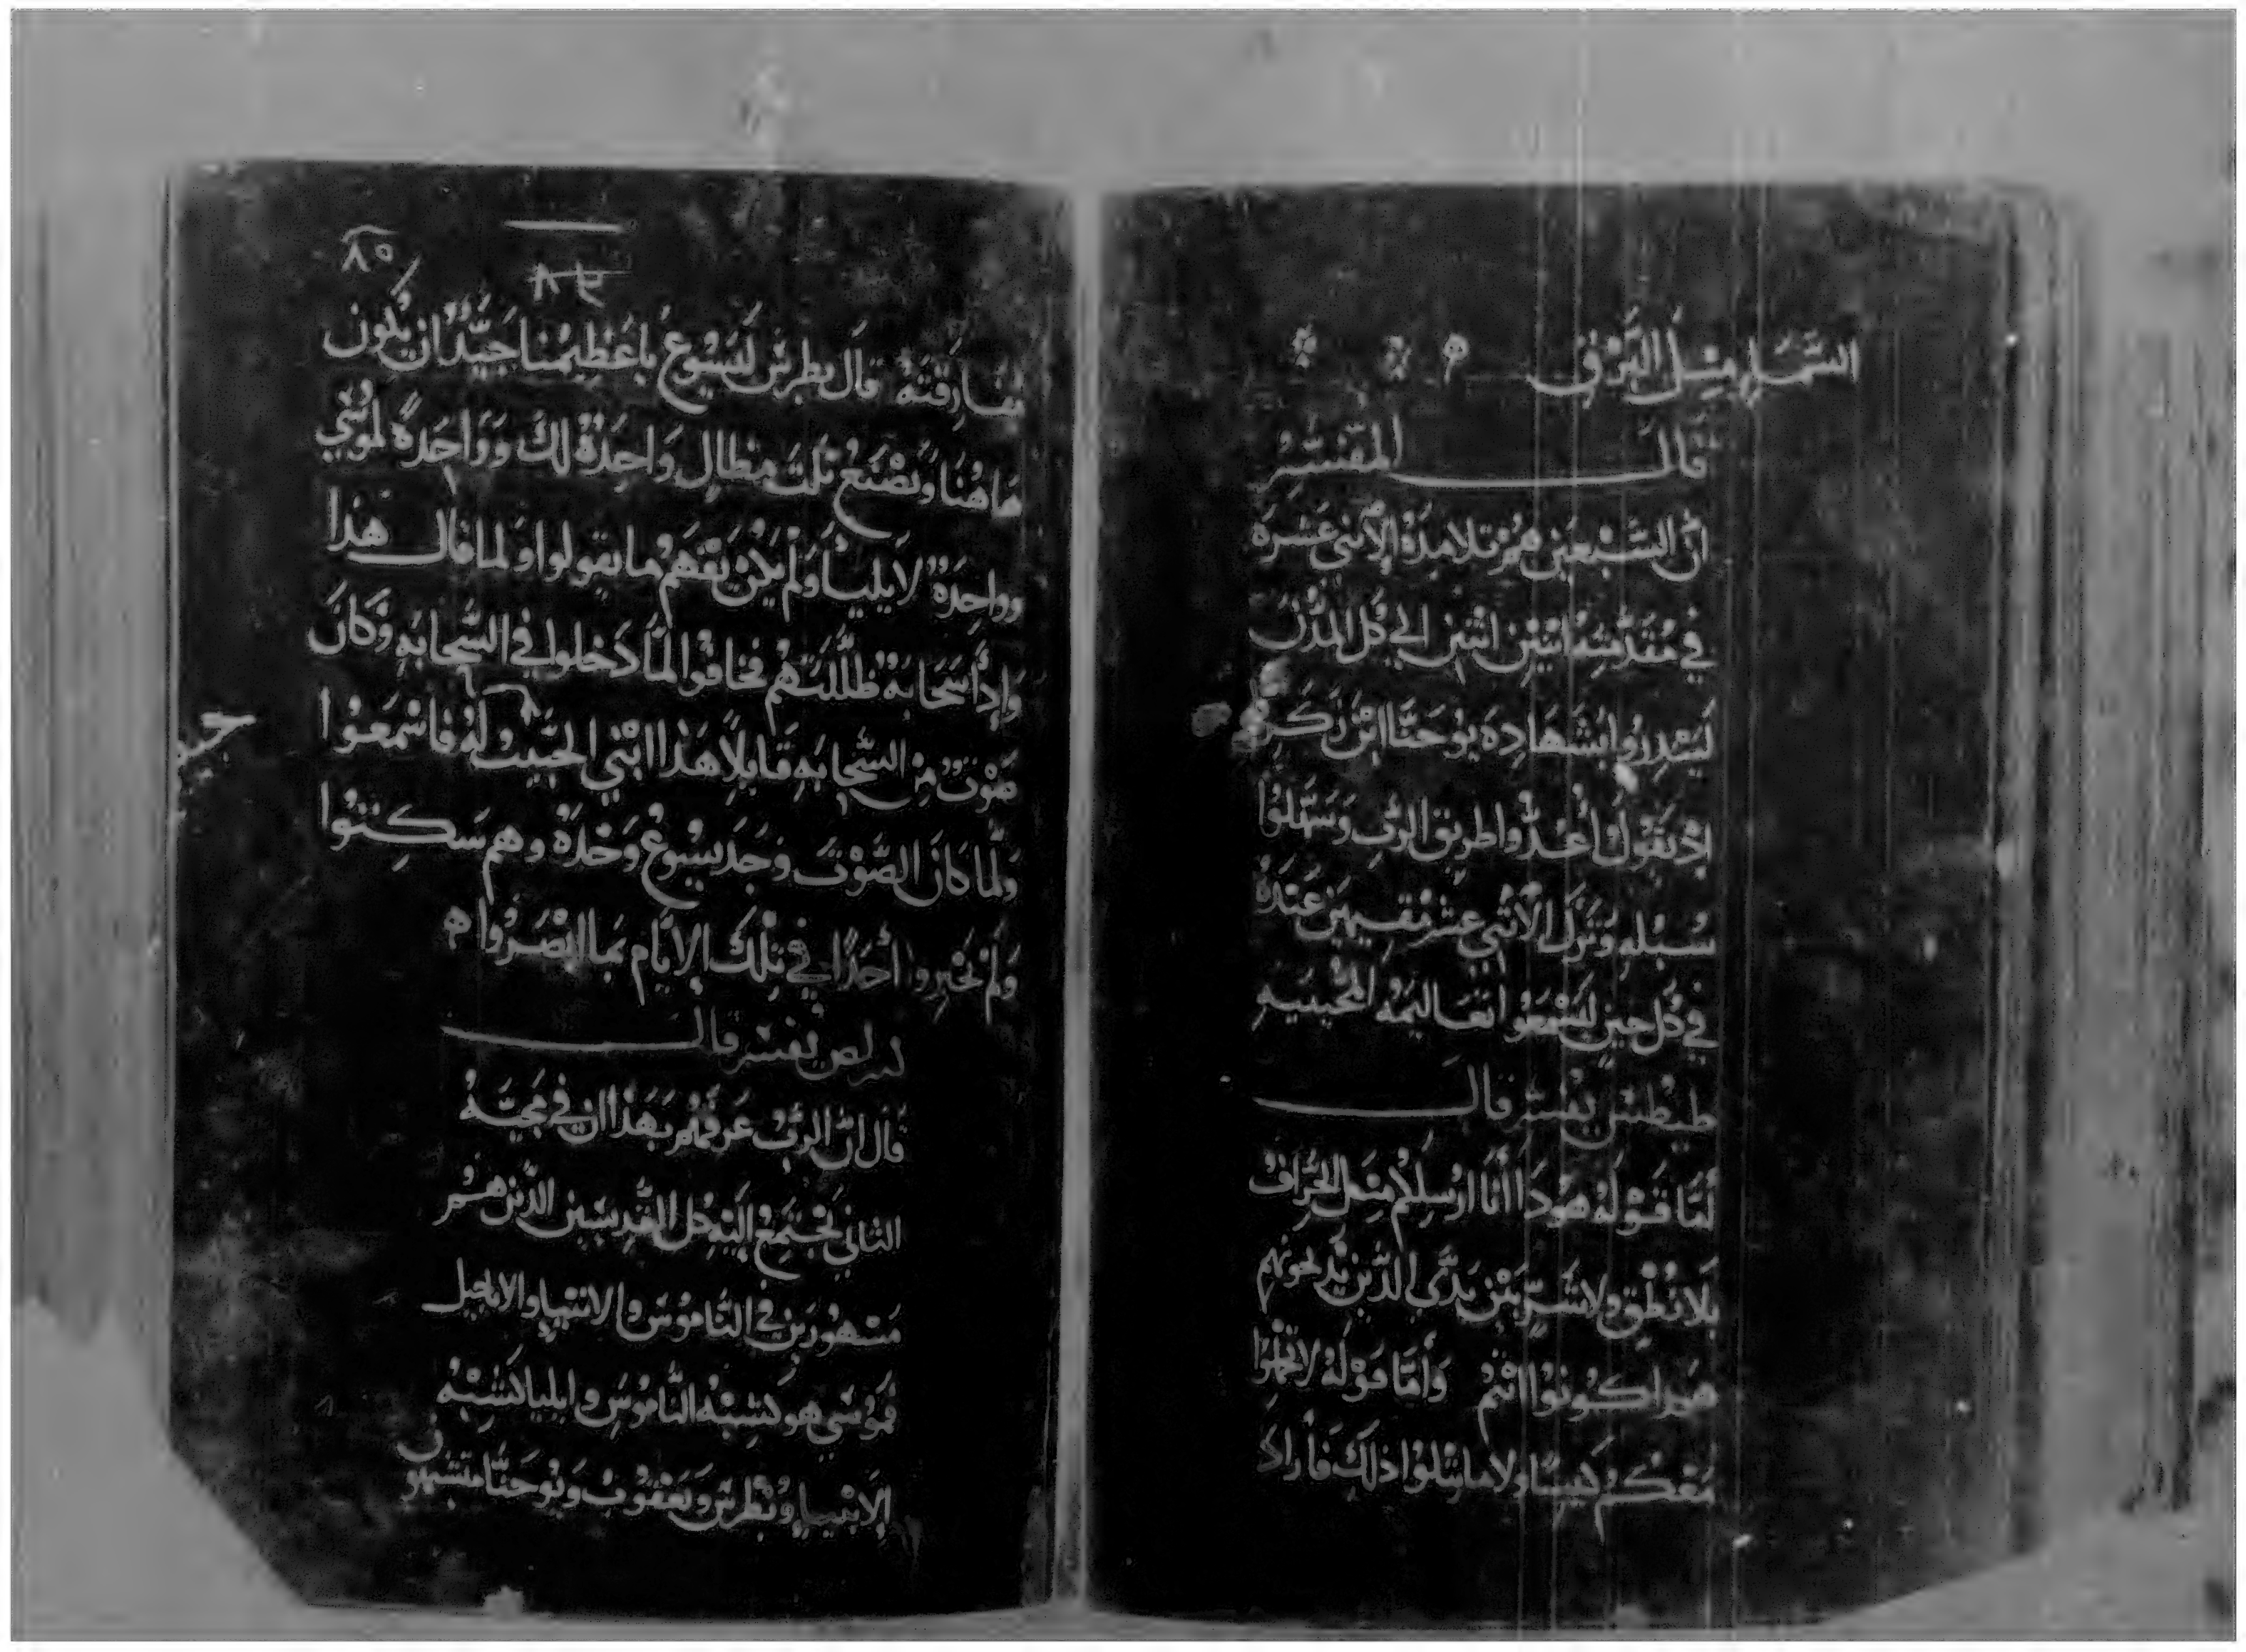 السَّمَاءِ مِثلَ البَرْقِ
قَالَ المفَسِّرُ
انَّ السَّبْعَين هُمْ تلامِذَةُ الاثنى عَشرَه
في مُقَدّمتِهُ اثنَيْنِ اثنين الي كُل المدُنْ
لينذِرُوا بشَهَادِة يوحَنَّا ابْن زكَرِيّا
إذ يَقُولُ أَعِدُّوا طريقَ الرّبِ وَسَهّلوُا
سُبْلهِ وَنزَلَ الاثنى عشر مُقيمينَ عَندَهُ
في كُل حينٍ ليَسْمَعُوا تعَاليمَهُ المحْييَهِ
طيطس يفسّر قالَ
أمّا قَوْلَهُ هوَدَا أنَا ارْسِلكُمْ مِثل الخِرَافْ
بلا نُطْقٍ ولا شَرٍّ بَيْن يَدَّى الدّين يذبحونهم
هكذا كونوُا انتُم وَأمّا قَوْلَهُ لا تحملُوا
مَعكمُ كيسًا ولا ما يَتلوُا ذلكَ فأرادَ
٨٥
مفارِقتَهُ قَال بطرس ليَسُوعْ ياعَظيمُنا جَيّدُ ان يكون
هَاهُنَا ونَصْنَعُ ثلثَ مِظالٍ وَاحِدَةٌ لكَ وَوَاحِدَةٌ لموُسَي
وواحِدَةٌ لايليَا وَلمْ يَكنْ يَفهَمُ ما يقولوا وَلما قال هَذا
وَإِدَا سَحَابَهْ ظَلَّلتهُم فخافوا لمّا دَخلوا في السَّحابَهِ وَكانَ
صَوْت مِن السَّحابَهِ قَايلاً هَذا ابْني الحَبيبُ لَهُ فاسْمَعُوا
وَلمّا كانَ الصَّوْتَ وَجَدَ يسُوعُ وَحْدَهُ وهم سَكِتوُا
وَلمْ يخَبِروا أحَدًا في تِلكَ الايَّام بمَا ابْصَرُوا
يفسّر قالَ
قَالَ انَّ الرَّبُ عَرفَهُمْ بهَذا ان في مجيَّهُ
الثاني تجتمِعُ إليْهِ كل القدِيسَين الدّين هُم
مَشْهورَين في النَّامُوسَ والانبيَاءِ والاناجيل
فموُسَي هوَ كشبْه النَّاموُسَ وايليا كشبْهُ
الانبيَاءِ وبُطرسَ وَيَعقوُبْ وَيوُحَنَّا متشبهون